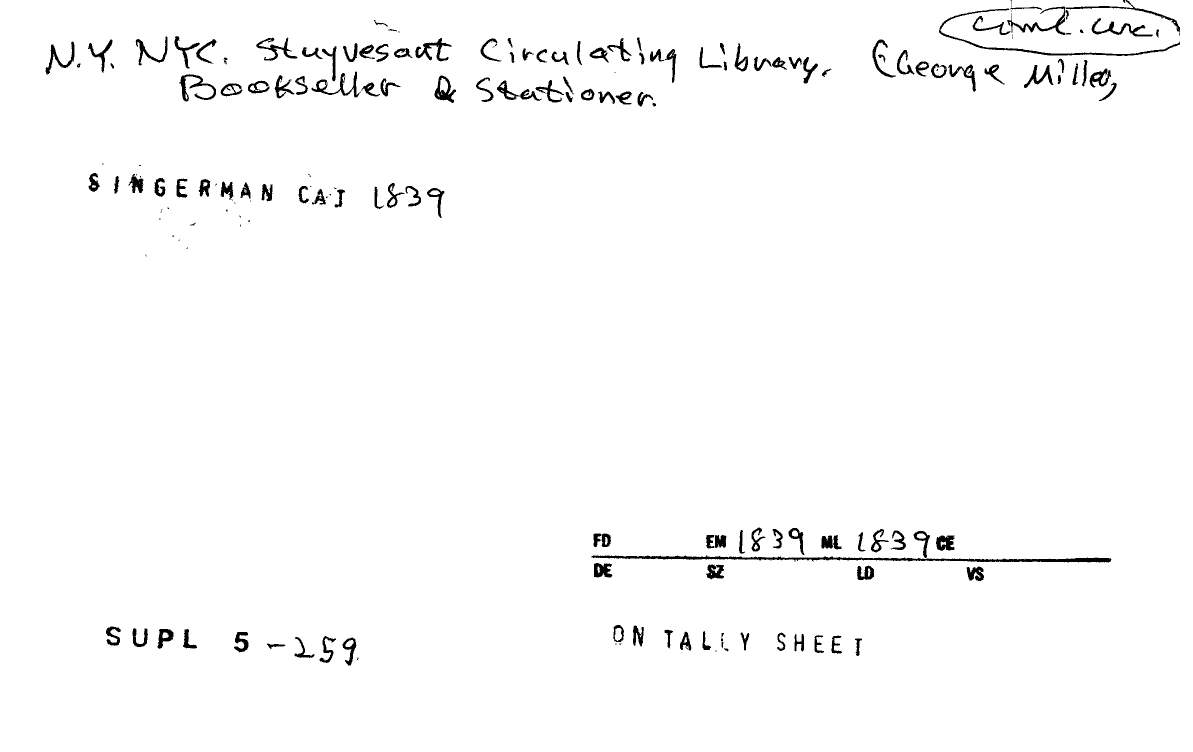 coml. circ.
N.Y. NYC. Stuyvesant Circulating Library. (George Miller,
Bookseller & Stationer.
SINGERMAN CAT 1839
FD EM 1839 ML 1839 CE
DE SZ LD VS
SUPL 5 -259
ON TALLY SHEET